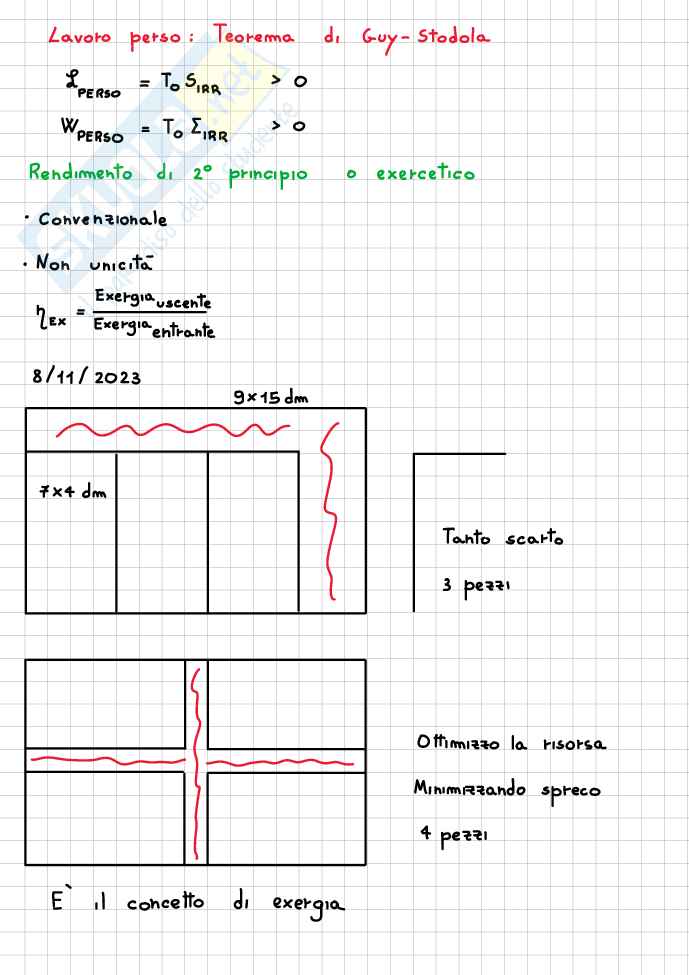 Lavoro perso: Teorema di Guy-Stodola
ℒ_PERSO = T₀ S_IRR > 0
W_PERSO = T₀ Σ_IRR > 0
Rendimento di 2° principio o exercetico
· Convenzionale
· Non unicità
η_EX = Exergia_uscente / Exergia_entrante
8/11/2023
9×15 dm
7×4 dm
Tanto scarto
3 pezzi
Ottimizzo la risorsa
Minimizzando spreco
4 pezzi
E` il concetto di exergia
SKUOLA.net
il paradiso dello studente